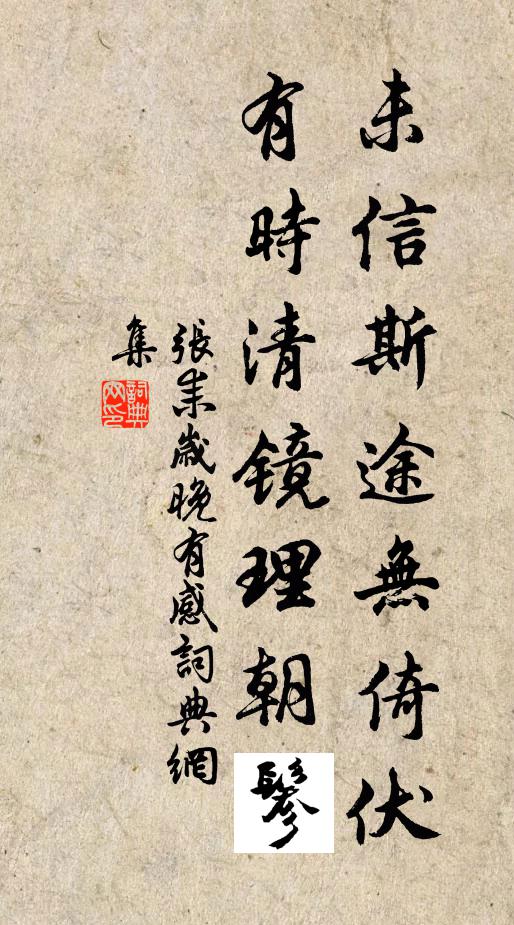 未信斯途無倚伏
有時清镜理朝鬖
張耒歲晚有感詞典網
集
詞典网印